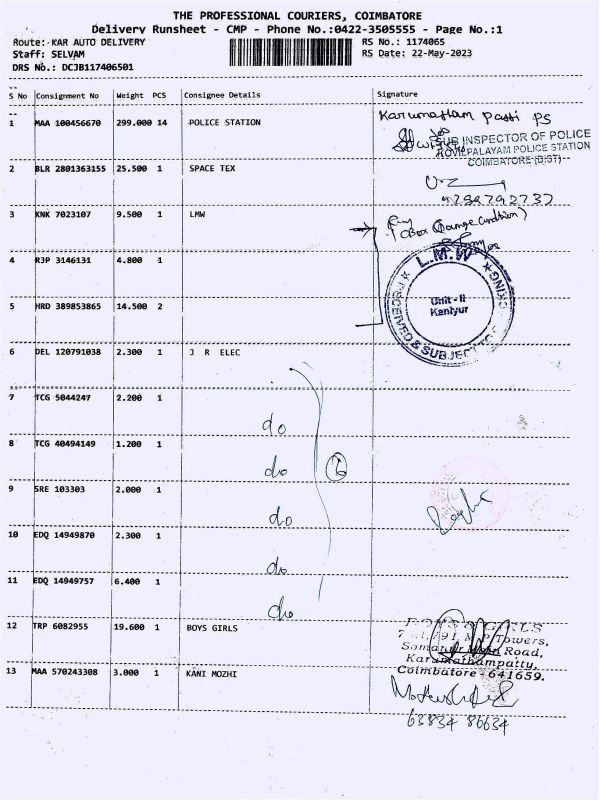 THE PROFESSIONAL COURIERS, COIMBATORE
Delivery Runsheet - CMP - Phone No.:0422-3505555 - Page No.:1
Route: KAR AUTO DELIVERY
RS No.: 1174065
Staff: SELVAM
RS Date: 22-May-2023
DRS No.: DCJB117406501
S No Consignment No Weight PCS Consignee Details Signature
1 MAA 100456670 299.000 14 POLICE STATION
PS
SUB INSPECTOR OF POLICE
KOVILPALAYAM POLICE STATION
COIMBATORE (DIST)
2 BLR 2801363155 25.500 1 SPACE TEX
3 KNK 7023107 9.500 1 LMW
(Box Change Condition)
4 RJP 3146131 4.800 1
L.M.W
Unit - II
Kaniyur
RECEIVED & SUBJECT TO
5 HRD 389853865 14.500 2
6 DEL 120791038 2.300 1 J R ELEC
7 TCG 5044247 2.200 1
do
8 TCG 40494149 1.200 1
do
6
9 SRE 103303 2.000 1
do
10 EDQ 14949870 2.300 1
do
11 EDQ 14949757 6.400 1
do
12 TRP 6082955 19.600 1 BOYS GIRLS
BOYS & GIRLS
Towers,
Main Road,
Karumathampatty,
Coimbatore - 641659.
13 MAA 570243308 3.000 1 KANI MOZHI
63834 86634